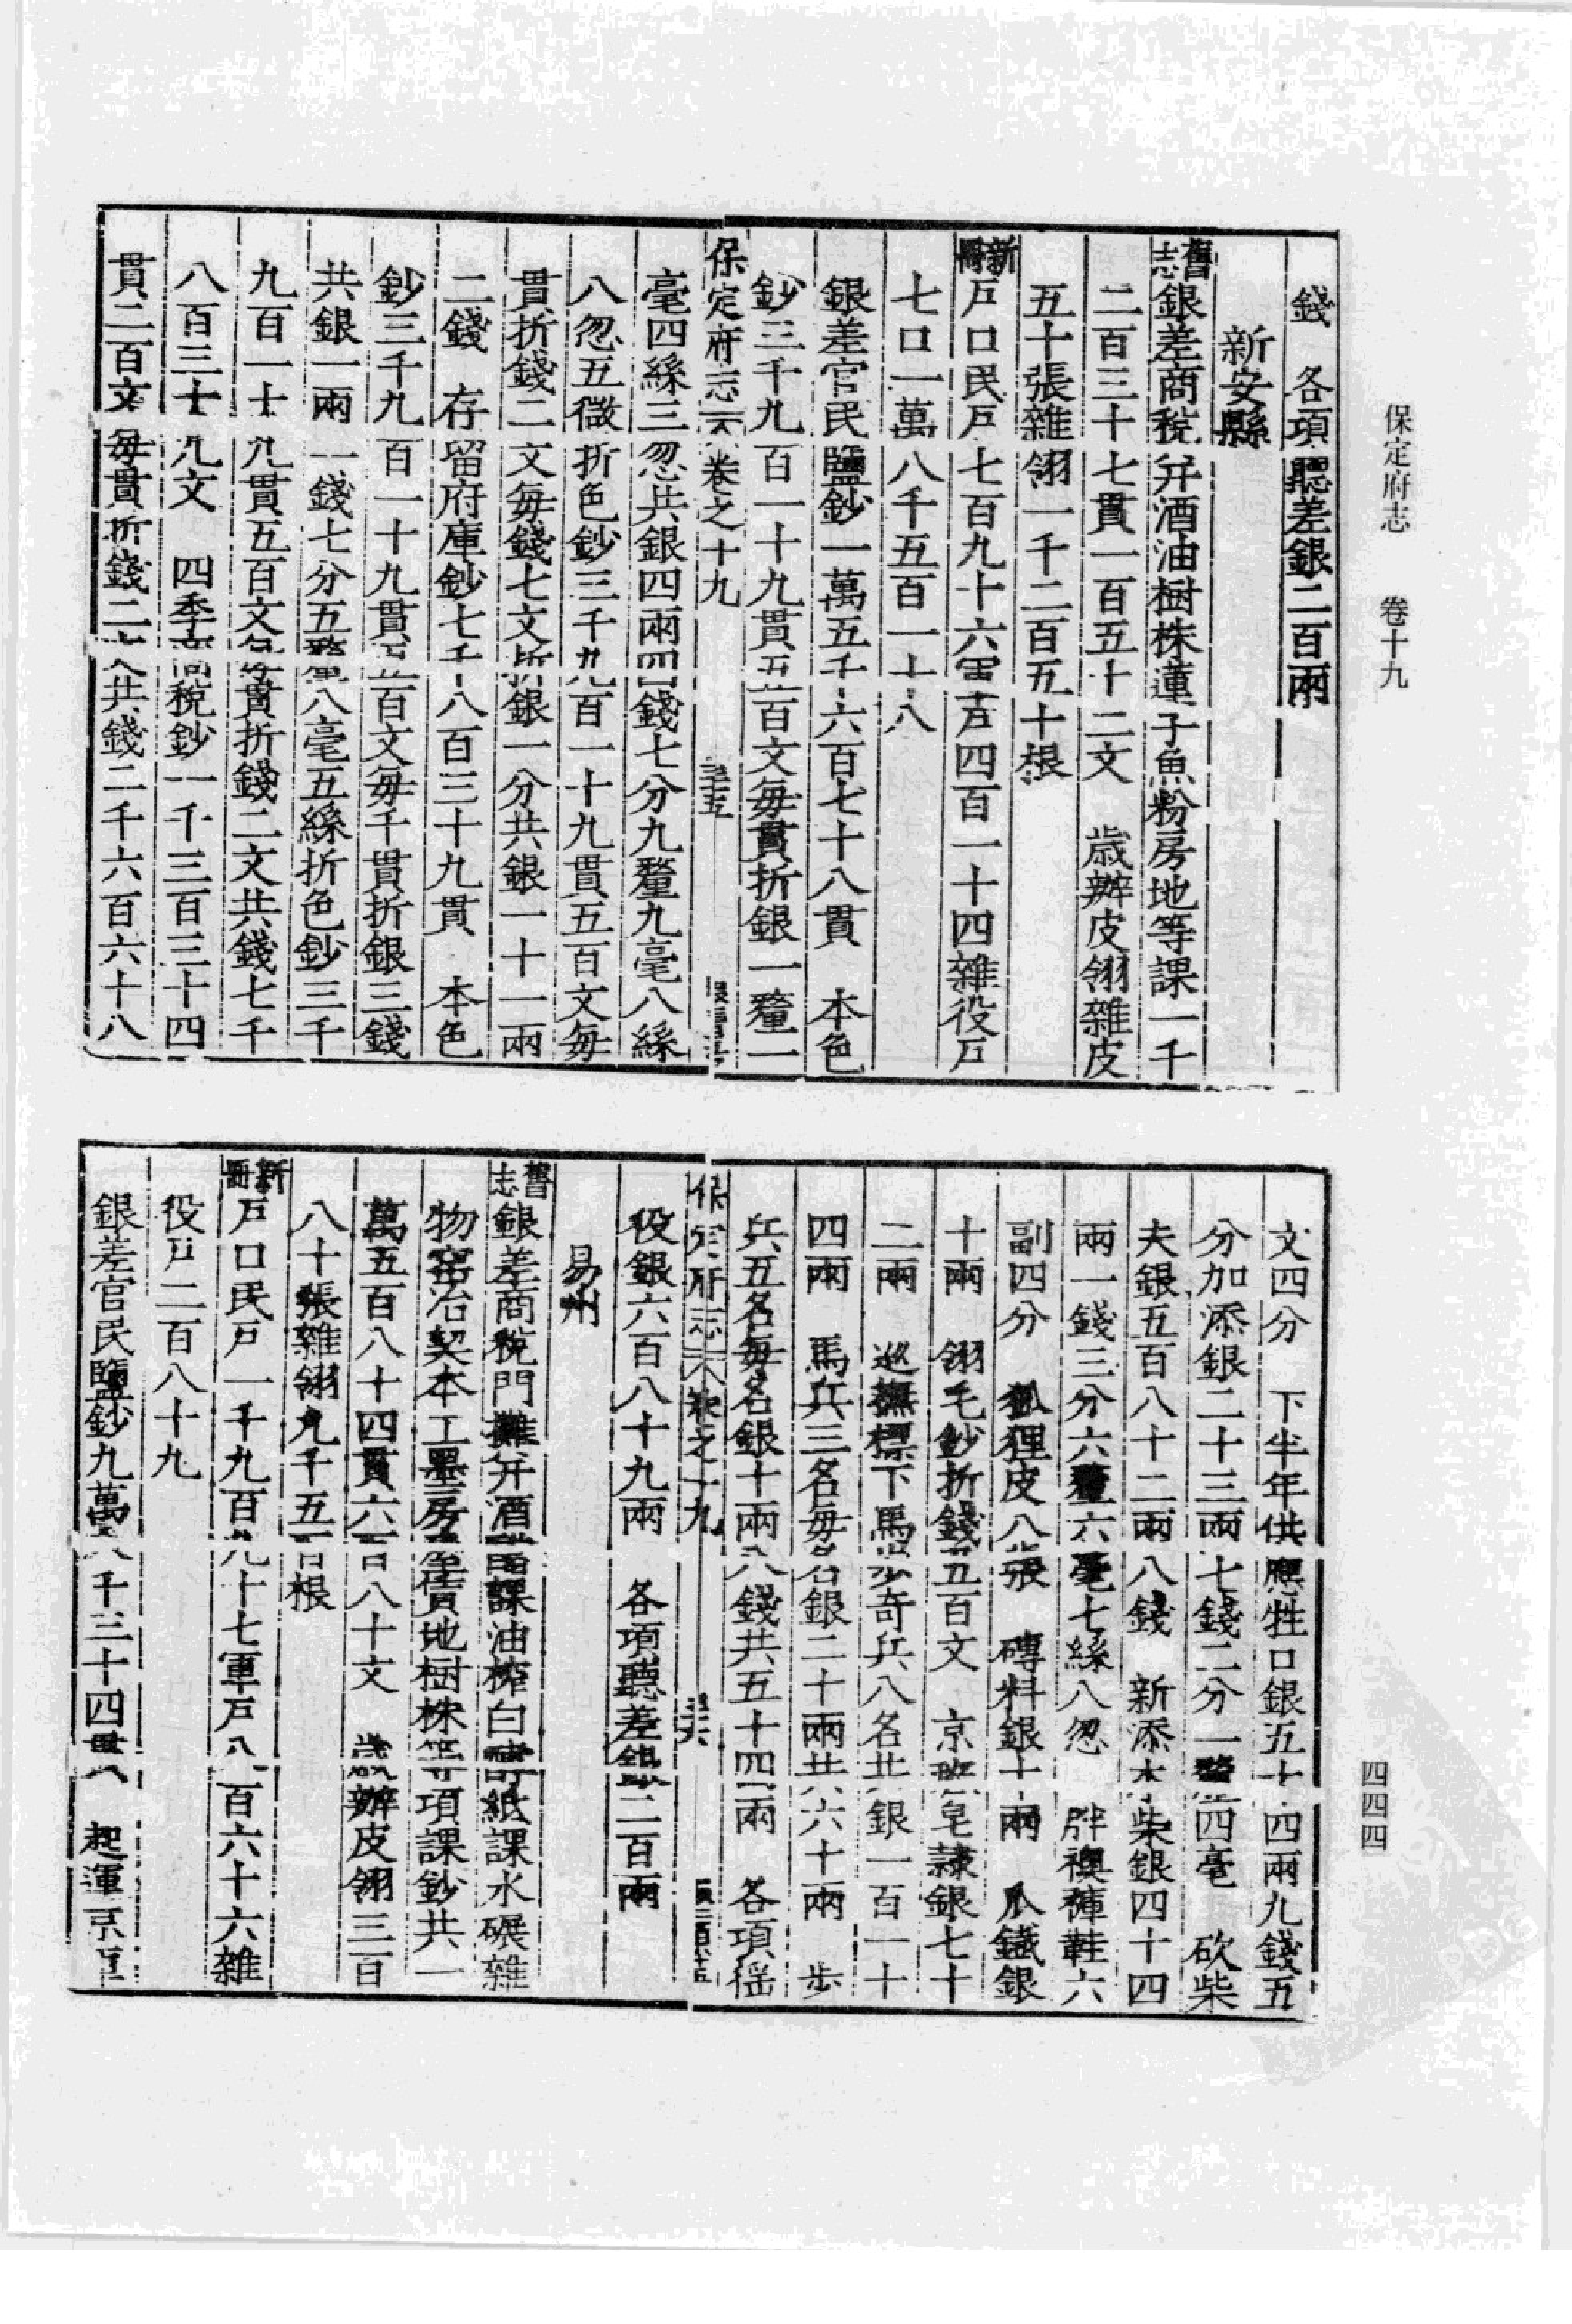 保定府志 卷十九
錢 各項聽差銀二百兩
新安縣
舊志銀差商稅弁酒油樹株蓮子魚粉房地等課一千
二百三十七貫一百五十二文 歲辦皮翎雜皮
五十張雜翎一千二百五十根
新冊戶口民戶七百九十六軍戶四百一十四雜役戶
七口一萬八千五百一十八
銀差官民鹽鈔一萬五千六百七十八貫 本色
鈔三千九百一十九貫五百文每貫折銀一釐一
保定府志 卷之十九 三十五
毫四絲三忽共銀四兩四錢七分九釐九毫八絲
八忽五微折色鈔三千九百一十九貫五百文每
貫折錢二文每錢七文折銀一分共銀一十一兩
二錢 存留府庫鈔七千八百三十九貫 本色
鈔三千九百一十九貫五百文每千貫折銀三錢
共銀一兩一錢七分五釐八毫五絲折色鈔三千
九百一十九貫五百文每貫折錢二文共錢七千
八百三十九文 四季商稅鈔一千三百三十四
貫二百文每貫折錢二文共錢二千六百六十八
文四分 下半年供應牲口銀五十四兩九錢五
分加添銀二十三兩七錢二分一釐四毫 砍柴
夫銀五百八十二兩八錢 新添木柴銀四十四
兩一錢三分六釐六毫七絲八忽 胖襖褲鞋六
副四分 狐狸皮八張 磚料銀十兩 爪鐵銀
十兩 翎毛鈔折錢五百文 京班皂隸銀七十
二兩 巡撫標下馬步奇兵八名共銀一百一十
四兩 馬兵三名每名銀二十兩共六十兩 步
兵五名每名銀十兩八錢共五十四兩 各項徭
保定府志 卷之十九 三十六
役銀六百八十九兩 各項聽差銀二百兩
易州
舊志銀差商稅門攤弁酒醋課油榨白紙課水碾雜
物窰冶契本工墨房賃地樹株等項課鈔共一
萬五百八十四貫六百八十文 歲辦皮翎三百
八十張雜翎九千五百根
新冊戶口民戶一千九百九十七軍戶八百六十六雜
役戶二百八十九
銀差官民鹽鈔九萬八千三十四貫 起運京庫
四四四